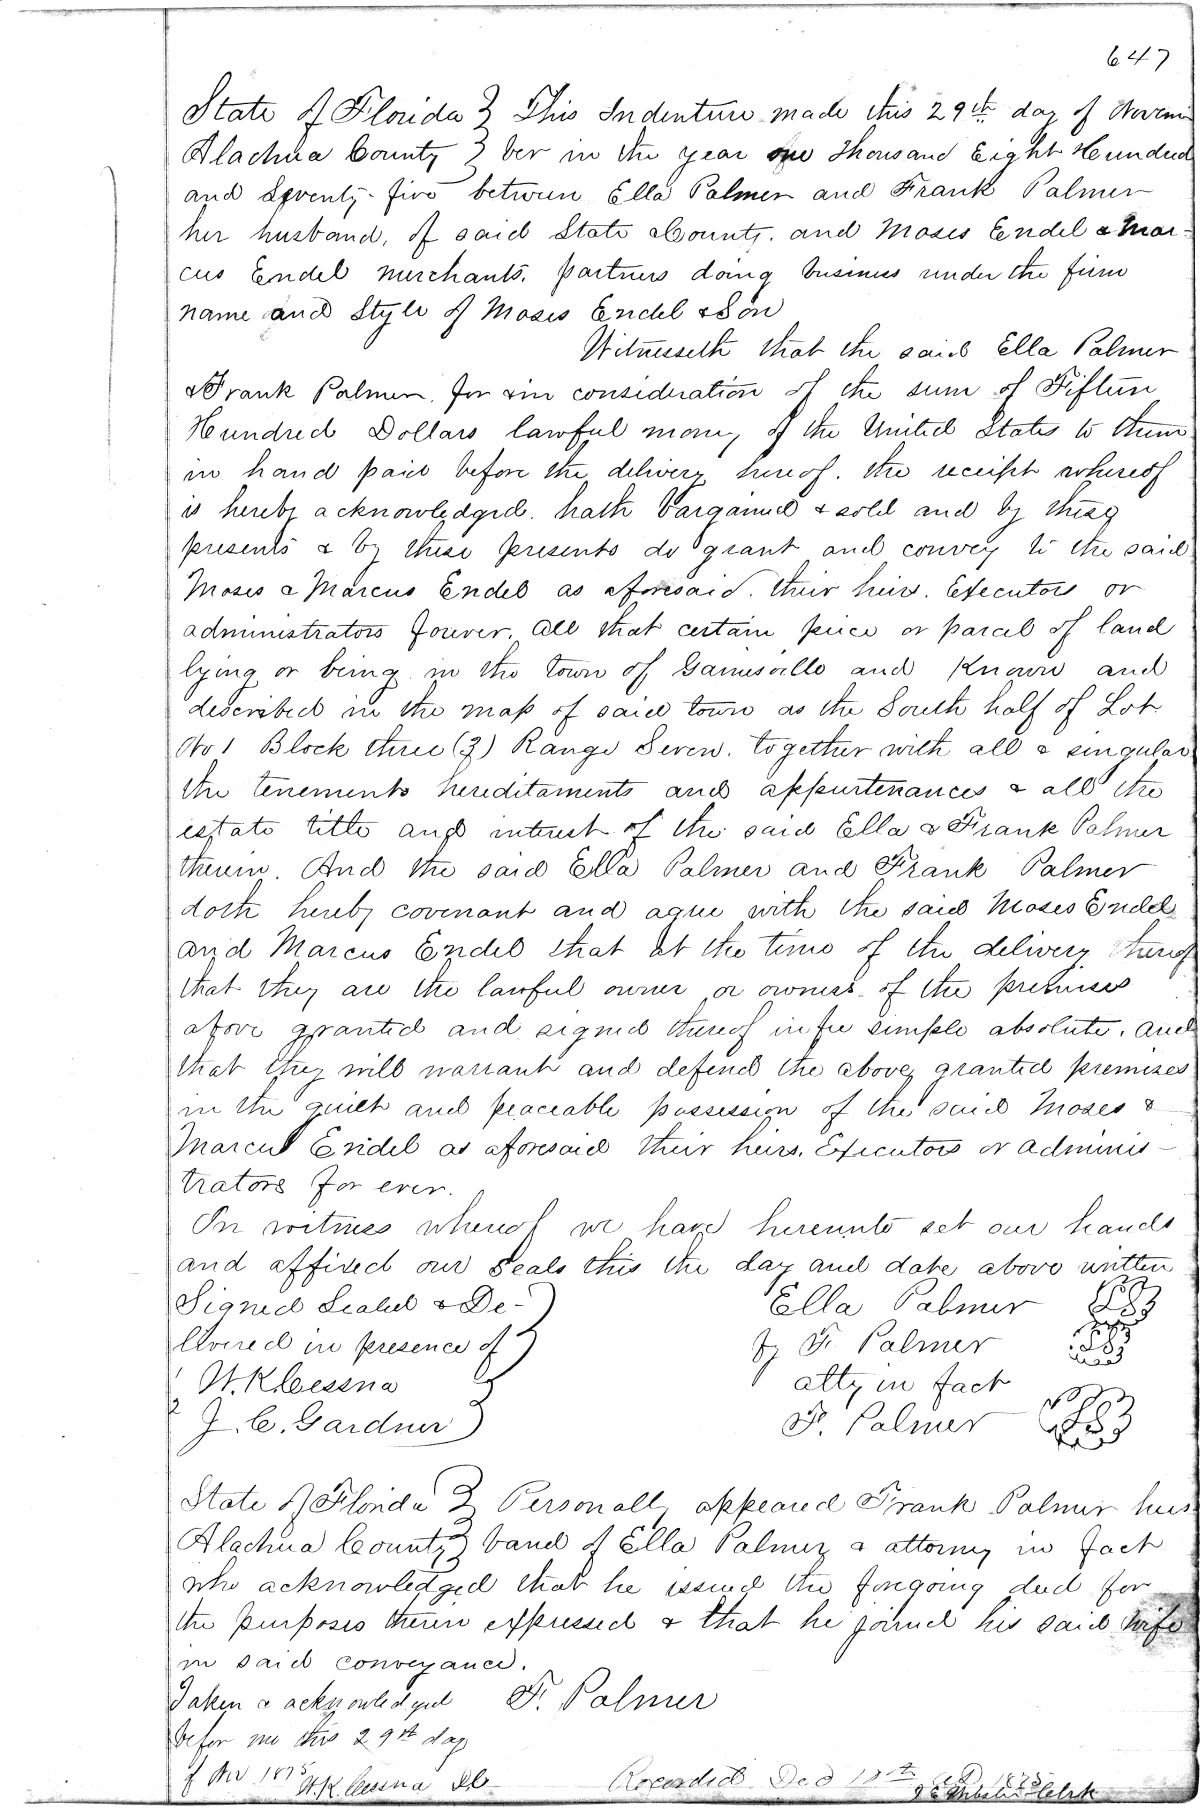 647
State of Florida } This Indenture made this 29th day of Novem
Alachua County } ber in the year one Thousand Eight Hundred
and Seventy-five between Ella Palmer and Frank Palmer
her husband, of said State & County. and Moses Endel & Mar-
cus Endel merchants. partners doing business under the firm
name and Style of Moses Endel & Son
Witnesseth that the said Ella Palmer
& Frank Palmer. for & in consideration of the sum of Fifteen
Hundred Dollars lawful money of the United States to them
in hand paid before the delivery hereof. the receipt whereof
is hereby acknowledged. hath bargained & sold and by these
presents & by these presents do grant and convey to the said
Moses & Marcus Endel as aforesaid. their heirs. Executors or
administrators forever. All that certain piece or parcel of land
lying or being in the town of Gainesville and Known and
described in the map of said town as the South half of Lot
No 1 Block three (3) Range Seven. together with all & singular
the tenements hereditaments and appurtenances & all the
estate title and interest of the said Ella & Frank Palmer
therein. And the said Ella Palmer and Frank Palmer
doth hereby covenant and agree with the said Moses Endel
and Marcus Endel that at the time of the delivery thereof
that they are the lawful owner or owners of the premises
above granted and signed thereof in fee simple absolute. and
that they will warrant and defend the above granted premises
in the quiet and peaceable possession of the said Moses &
Marcus Endel as aforesaid their heirs. Executors or adminis-
trators for ever.
In witness whereof we have hereunto set our hands
and affixed our Seals this the day and date above written
Signed Sealed & De- } Ella Palmer LS
livered in presence of } by F. Palmer LS
1 W. K. Cessna atty in fact
2 J. C. Gardner } F. Palmer LS
State of Florida } Personally appeared Frank Palmer hus
Alachua County } band of Ella Palmer & attorney in fact
who acknowledged that he issued the foregoing deed for
the purposes therein expressed & that he joined his said wife
in said conveyance.
Taken & acknowledged F. Palmer
before me this 29th day
of Nov 1875 W. K. Cessna
Recorded Dec AD 1875
Clerk